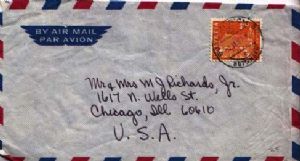 BY AIR MAIL
PAR AVION
Mr & Mrs M J Richards, Jr.
1617 N. Wells St.
Chicago, Ill 60610
U. S. A.